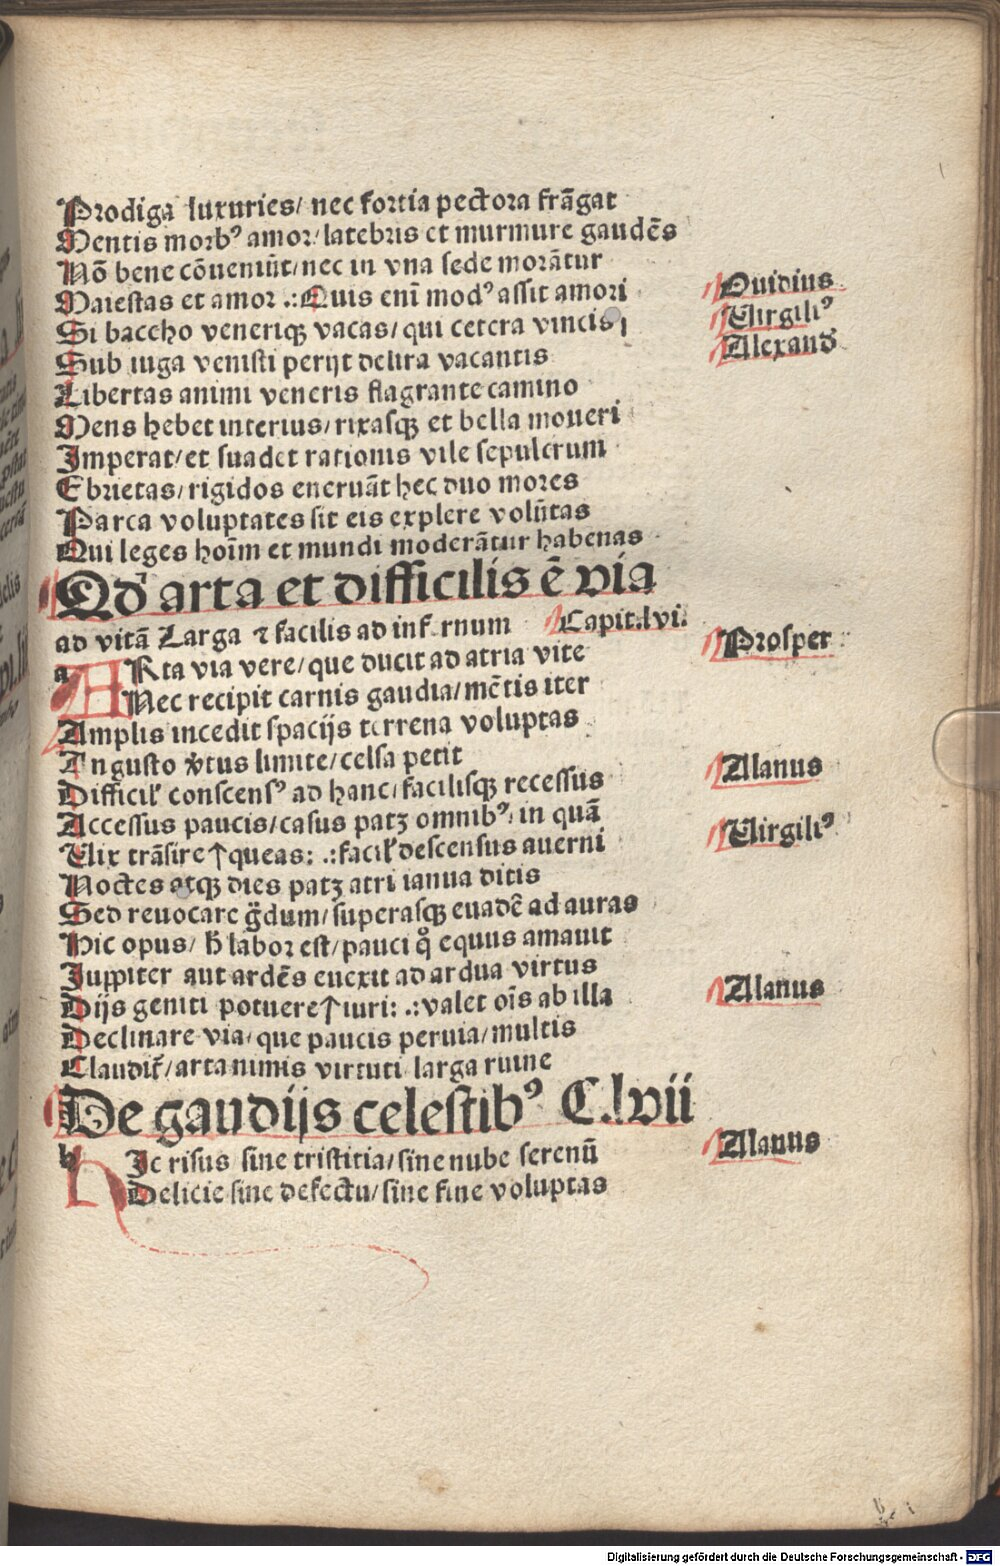 Prodiga luxuries/ nec fortia pectora frāgat
Mentis morbꝰ amor/ latebris et murmure gaudēs
Nō bene cōueniūt/ nec in vna sede morātur
Maiestas et amor .:Quis eni᷒ modꝰ assit amori
Ouidius
Si baccho veneriqꝫ vacas/ qui cetera vincis
Virgiliꝰ
Sub iuga venisti perijt delira vacantis
Alexand᷒
Libertas animi veneris flagrante camino
Mens hebet interius/ rixasqꝫ et bella moueri
Imperat/ et suadet rationis vile sepulcrum
Ebrietas/ rigidos eneruāt hec duo mores
Parca voluptates sit eis explere volūtas
Qui leges hoīm et mundi moderātur habenas
Qd᷒ arta et difficilis ē via
ad vitā Larga ⁊ facilis ad inf rnum Capit.lvi.
a ARta via vere/ que ducit ad atria vite
Prosper
Nec recipit carnis gaudia/ mētis iter
Amplis incedit spacijs terrena voluptas
Angusto v̊tus limite/ celsa petit
Difficil᷒ conscensꝰ ad hanc/ facilisqꝫ recessus
Alanus
Accessus paucis/ casus patꝫ omnibꝰ/ in quā
Vix trāsire ↑queas: .:facil᷒ descensus auerni
Virgiliꝰ
Noctes atqꝫ dies patꝫ atri ianua ditis
Sed reuocare g̈dum/ superasqꝫ euadē ad auras
Hic opus/ h̄ labor est/ pauci q̊ equus amauit
Iuppiter aut ardēs euexit ad ardua virtus
Dijs geniti potuere ↑iuri: .:valet oīs ab illa
Alanus
Declinare via/ que paucis peruia/ multis
Claudit᷒/ arta nimis virtuti larga ruine
De gaudijs celestibꝰ C.lvii
h HIc risus sine tristitia/ sine nube serenū
Alanus
Delicie sine defectu/ sine fine voluptas
Digitalisierung gefördert durch die Deutsche Forschungsgemeinschaft - DFG